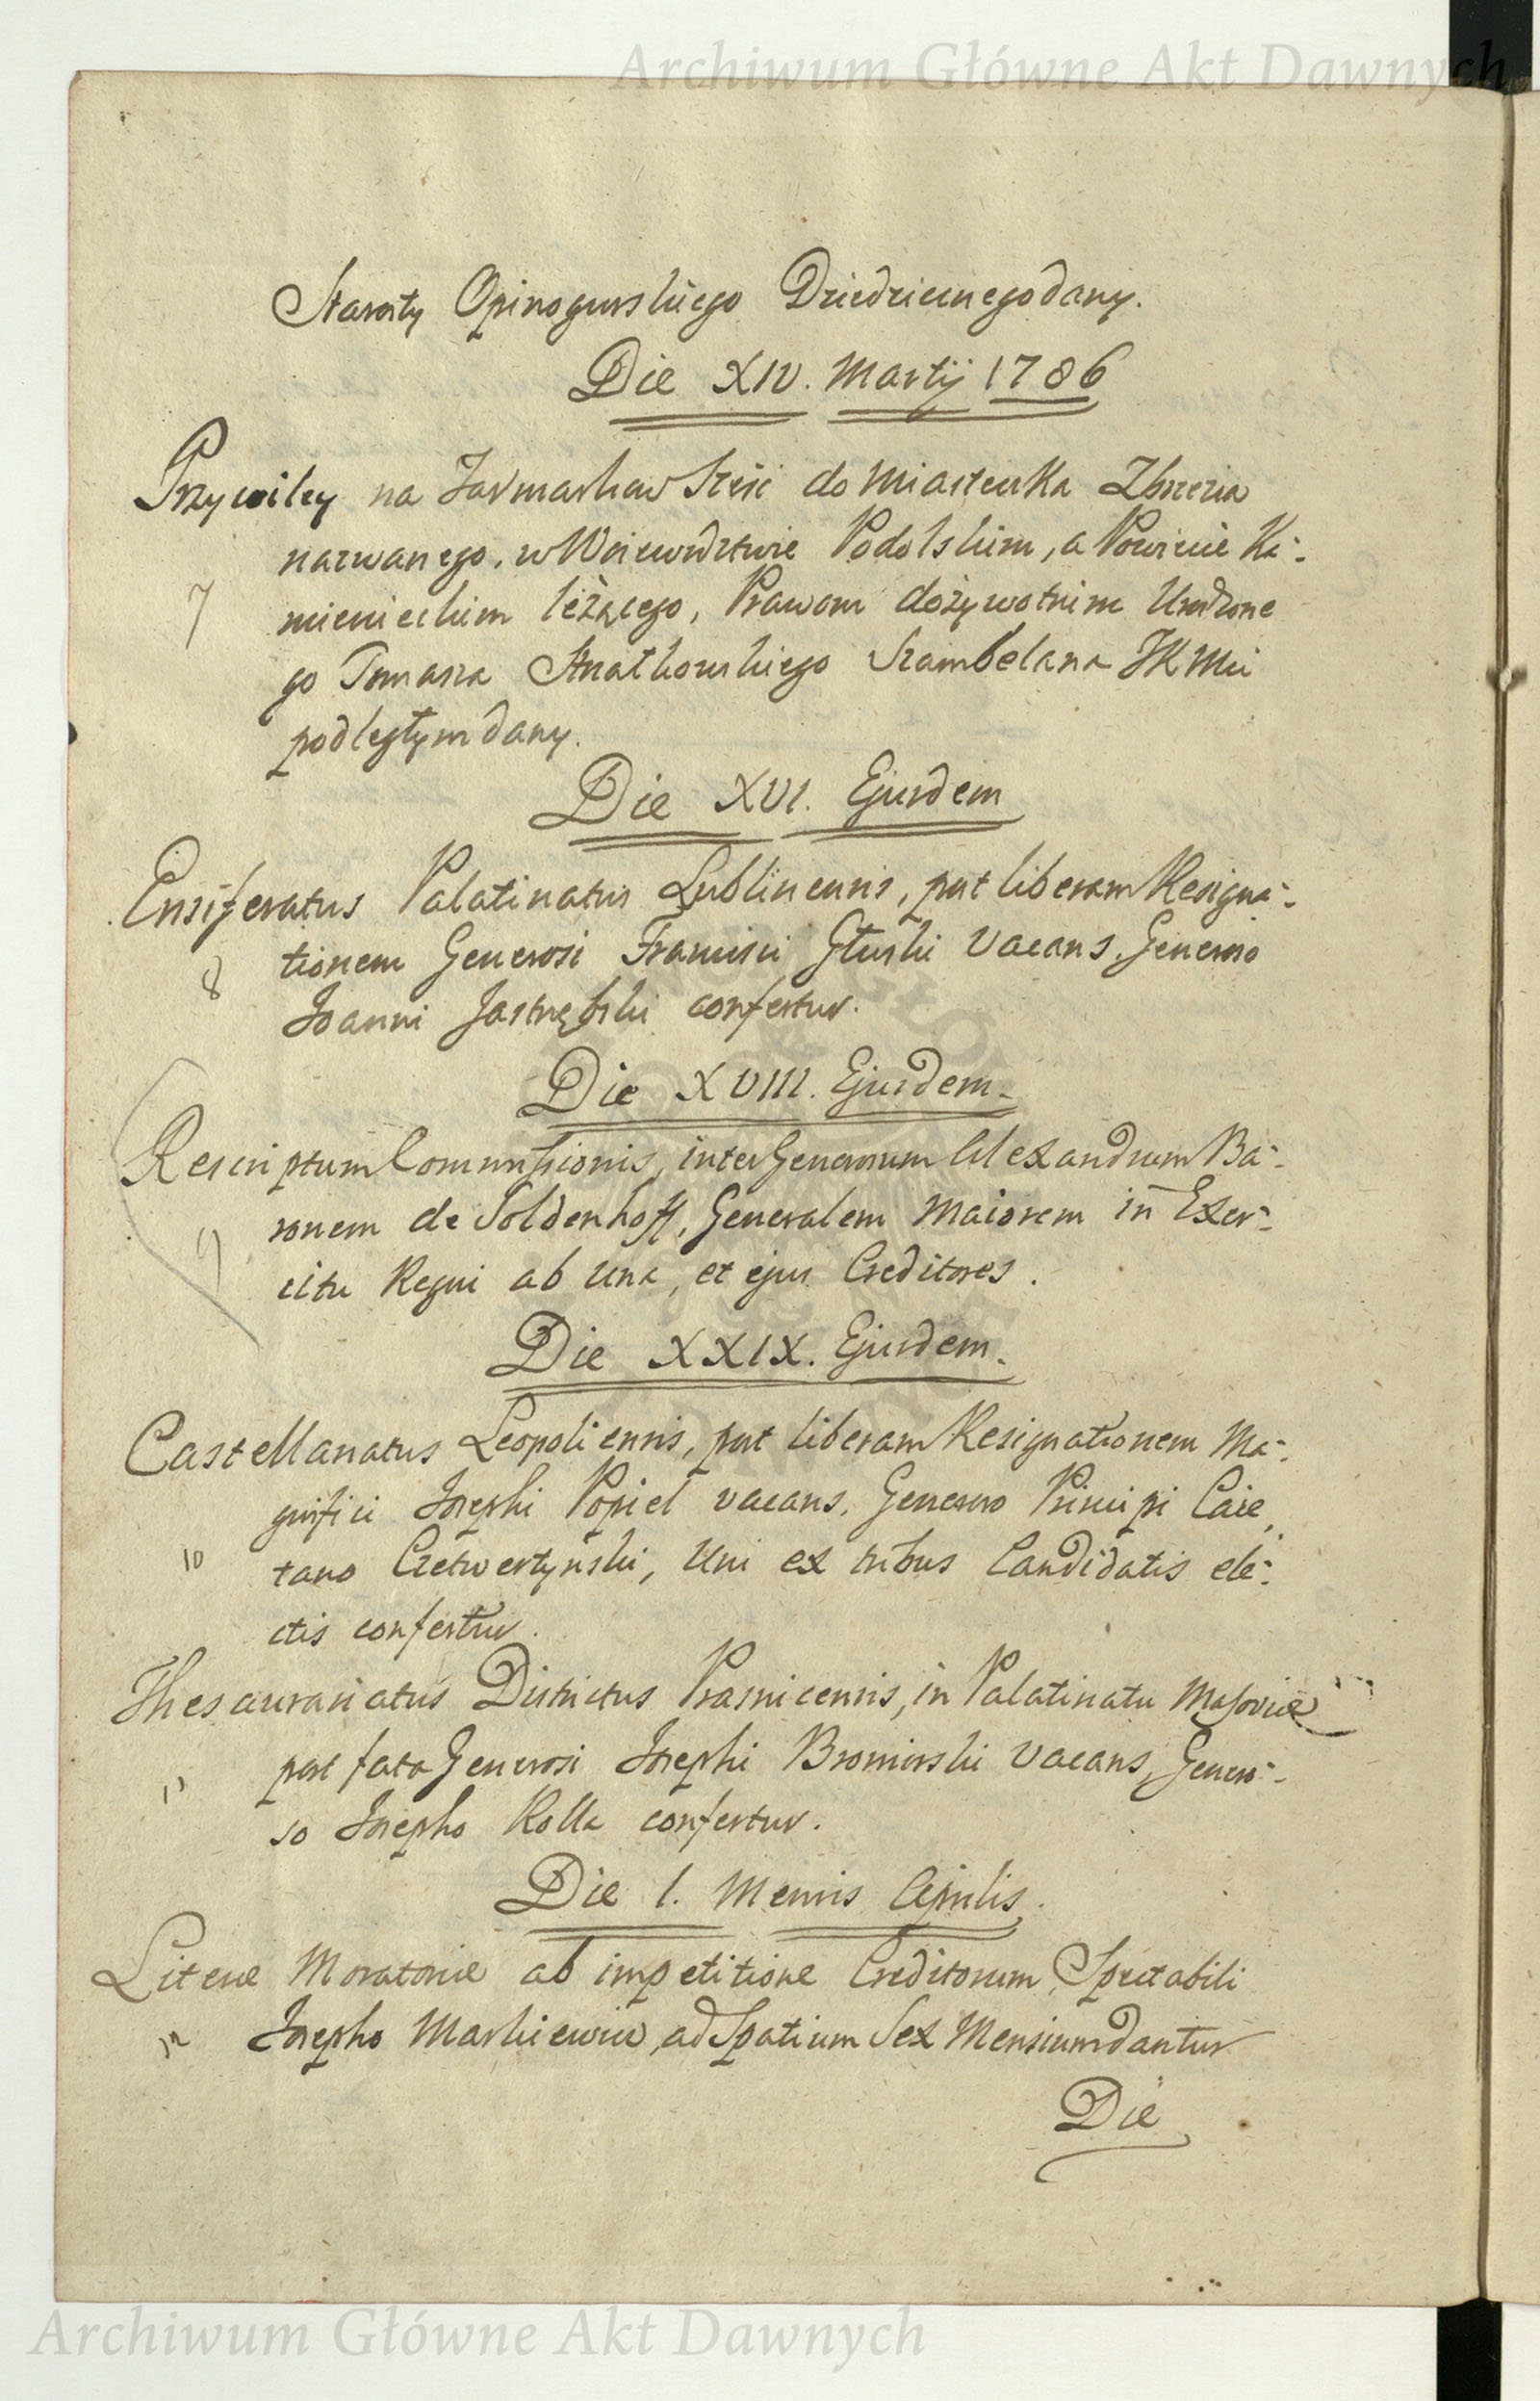 Archiwum Główne Akt Dawnych
Starosty Opinogurskiego Dziedzicznego dany.
Die XIV. Martij 1786
Przywiley na Jarmarkow Sześć do Miasteczka Zbrzezia
nazwanego, w Woiewodztwie Podolskim, a Powiecie Ka-
7 mienieckim leżącego, Prawom dożywotnim Urodzone
go Tomasza Strutkowskiego Szambelana JKMci
podległym dany.
Die XVI. Ejusdem
Ensiferatus Palatinatus Lublinensis, post liberam Resigna-
8 tionem Generosi Francisci Głuski vacans, Generoso
Joanni Jastrzębski confertur.
Die XVIII. Ejusdem
Rescriptum Commissionis, inter Generosum Alexandrum Ba-
9 ronem de Soldenhoff, Generalem Maiorem in Exer-
citu Regni ab una, et ejus Creditores.
Die XXIX. Ejusdem
Castellanatus Leopoliensis, post liberam Resignationem Ma-
gnifici Josephi Popiel vacans, Generoso Principi Caie
10 tano Czetwertyński, Uni ex tribus Candidatis ele-
ctis confertur.
Thesaurariatus Districtus Prasnicensis, in Palatinatu Masoviæ
11 post fata Generosi Josephi Bromirski vacans, Genero-
so Josepho Kolla confertur.
Die 1. Mensis Aprilis
Literæ Moratoriæ ab impetitione Creditorum, Spectabili
12 Josepho Markiewicz, ad Spatium Sex Mensium dantur
Die
Archiwum Główne Akt Dawnych